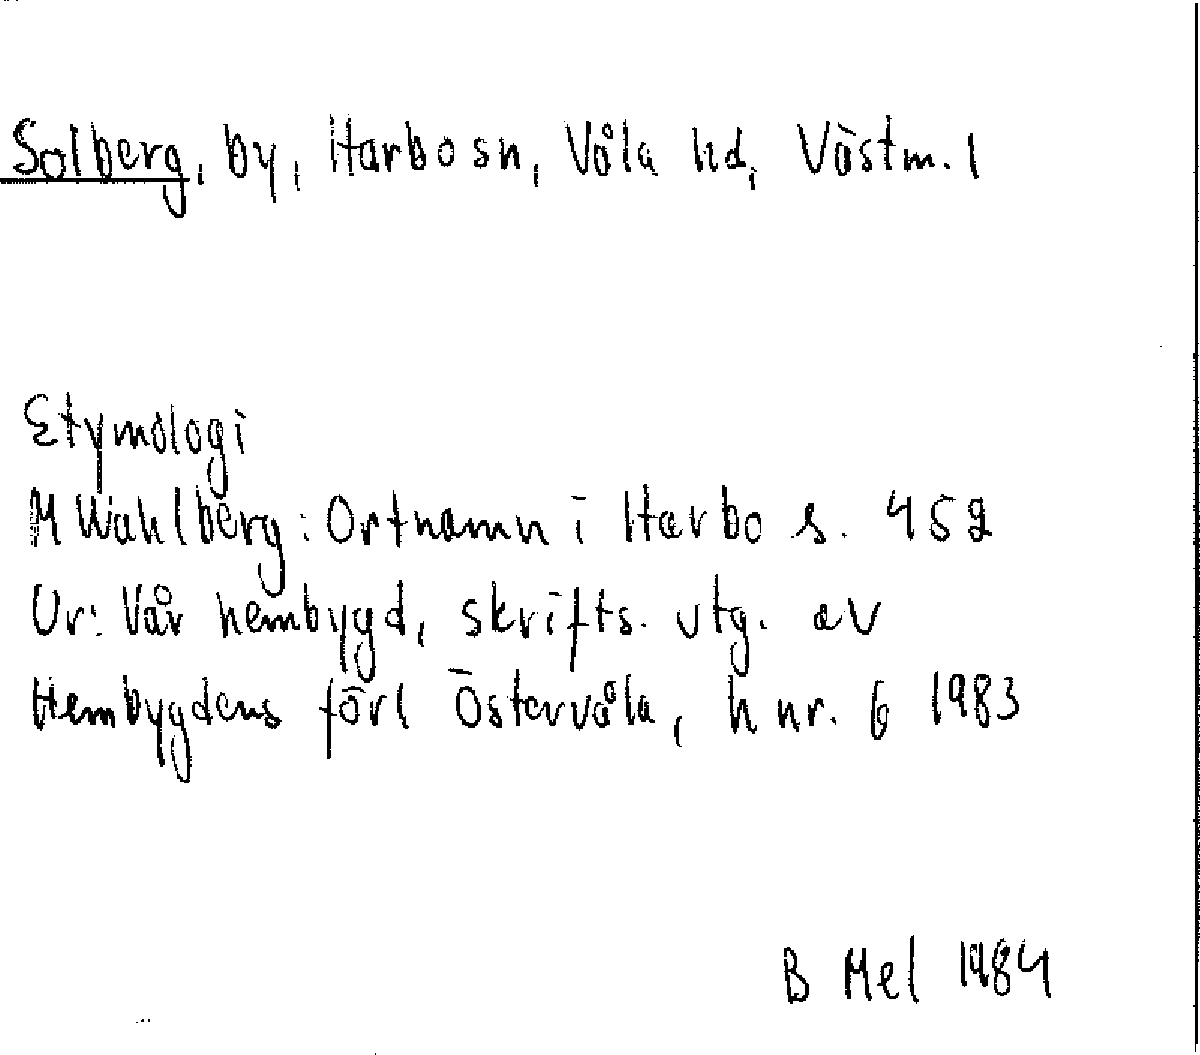 Solberg, by, Harbo sn, Våla hd, Västm. l
Etymologi
M Wahlberg: Ortnamn i Harbo s. 452
Ur: Vår hembygd, skrifts. utg. av
Hembygdens förl Östervåla, h nr. 6 1983
B Mel 1984